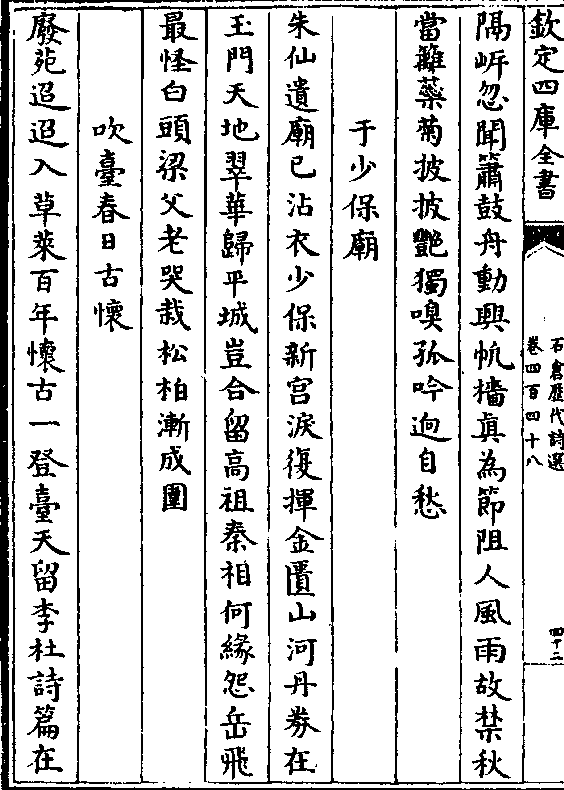 欽定四庫全書
石倉歷代詩選
卷四百四十八
四十二
隔岍忽聞簫鼓舟動興帆檣真為節阻人風雨故禁秋
當籬藥菊披披艷獨嗅孤吟逈自愁
于少保廟
朱仙遺廟已沾衣少保新宫淚復揮金匱山河丹券在
玉門天地翠華歸平城豈合留高祖秦相何緣怨岳飛
最怪白頭梁父老哭栽松柏漸成圍
吹臺春日古懷
廢苑迢迢入草萊百年懷古一登臺天留李杜詩篇在